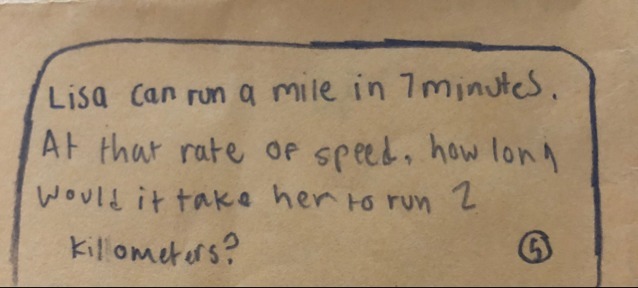 Lisa can run a mile in 7 minutes.
At that rate of speed, how long
would it take her to run 2
kilometers?
5